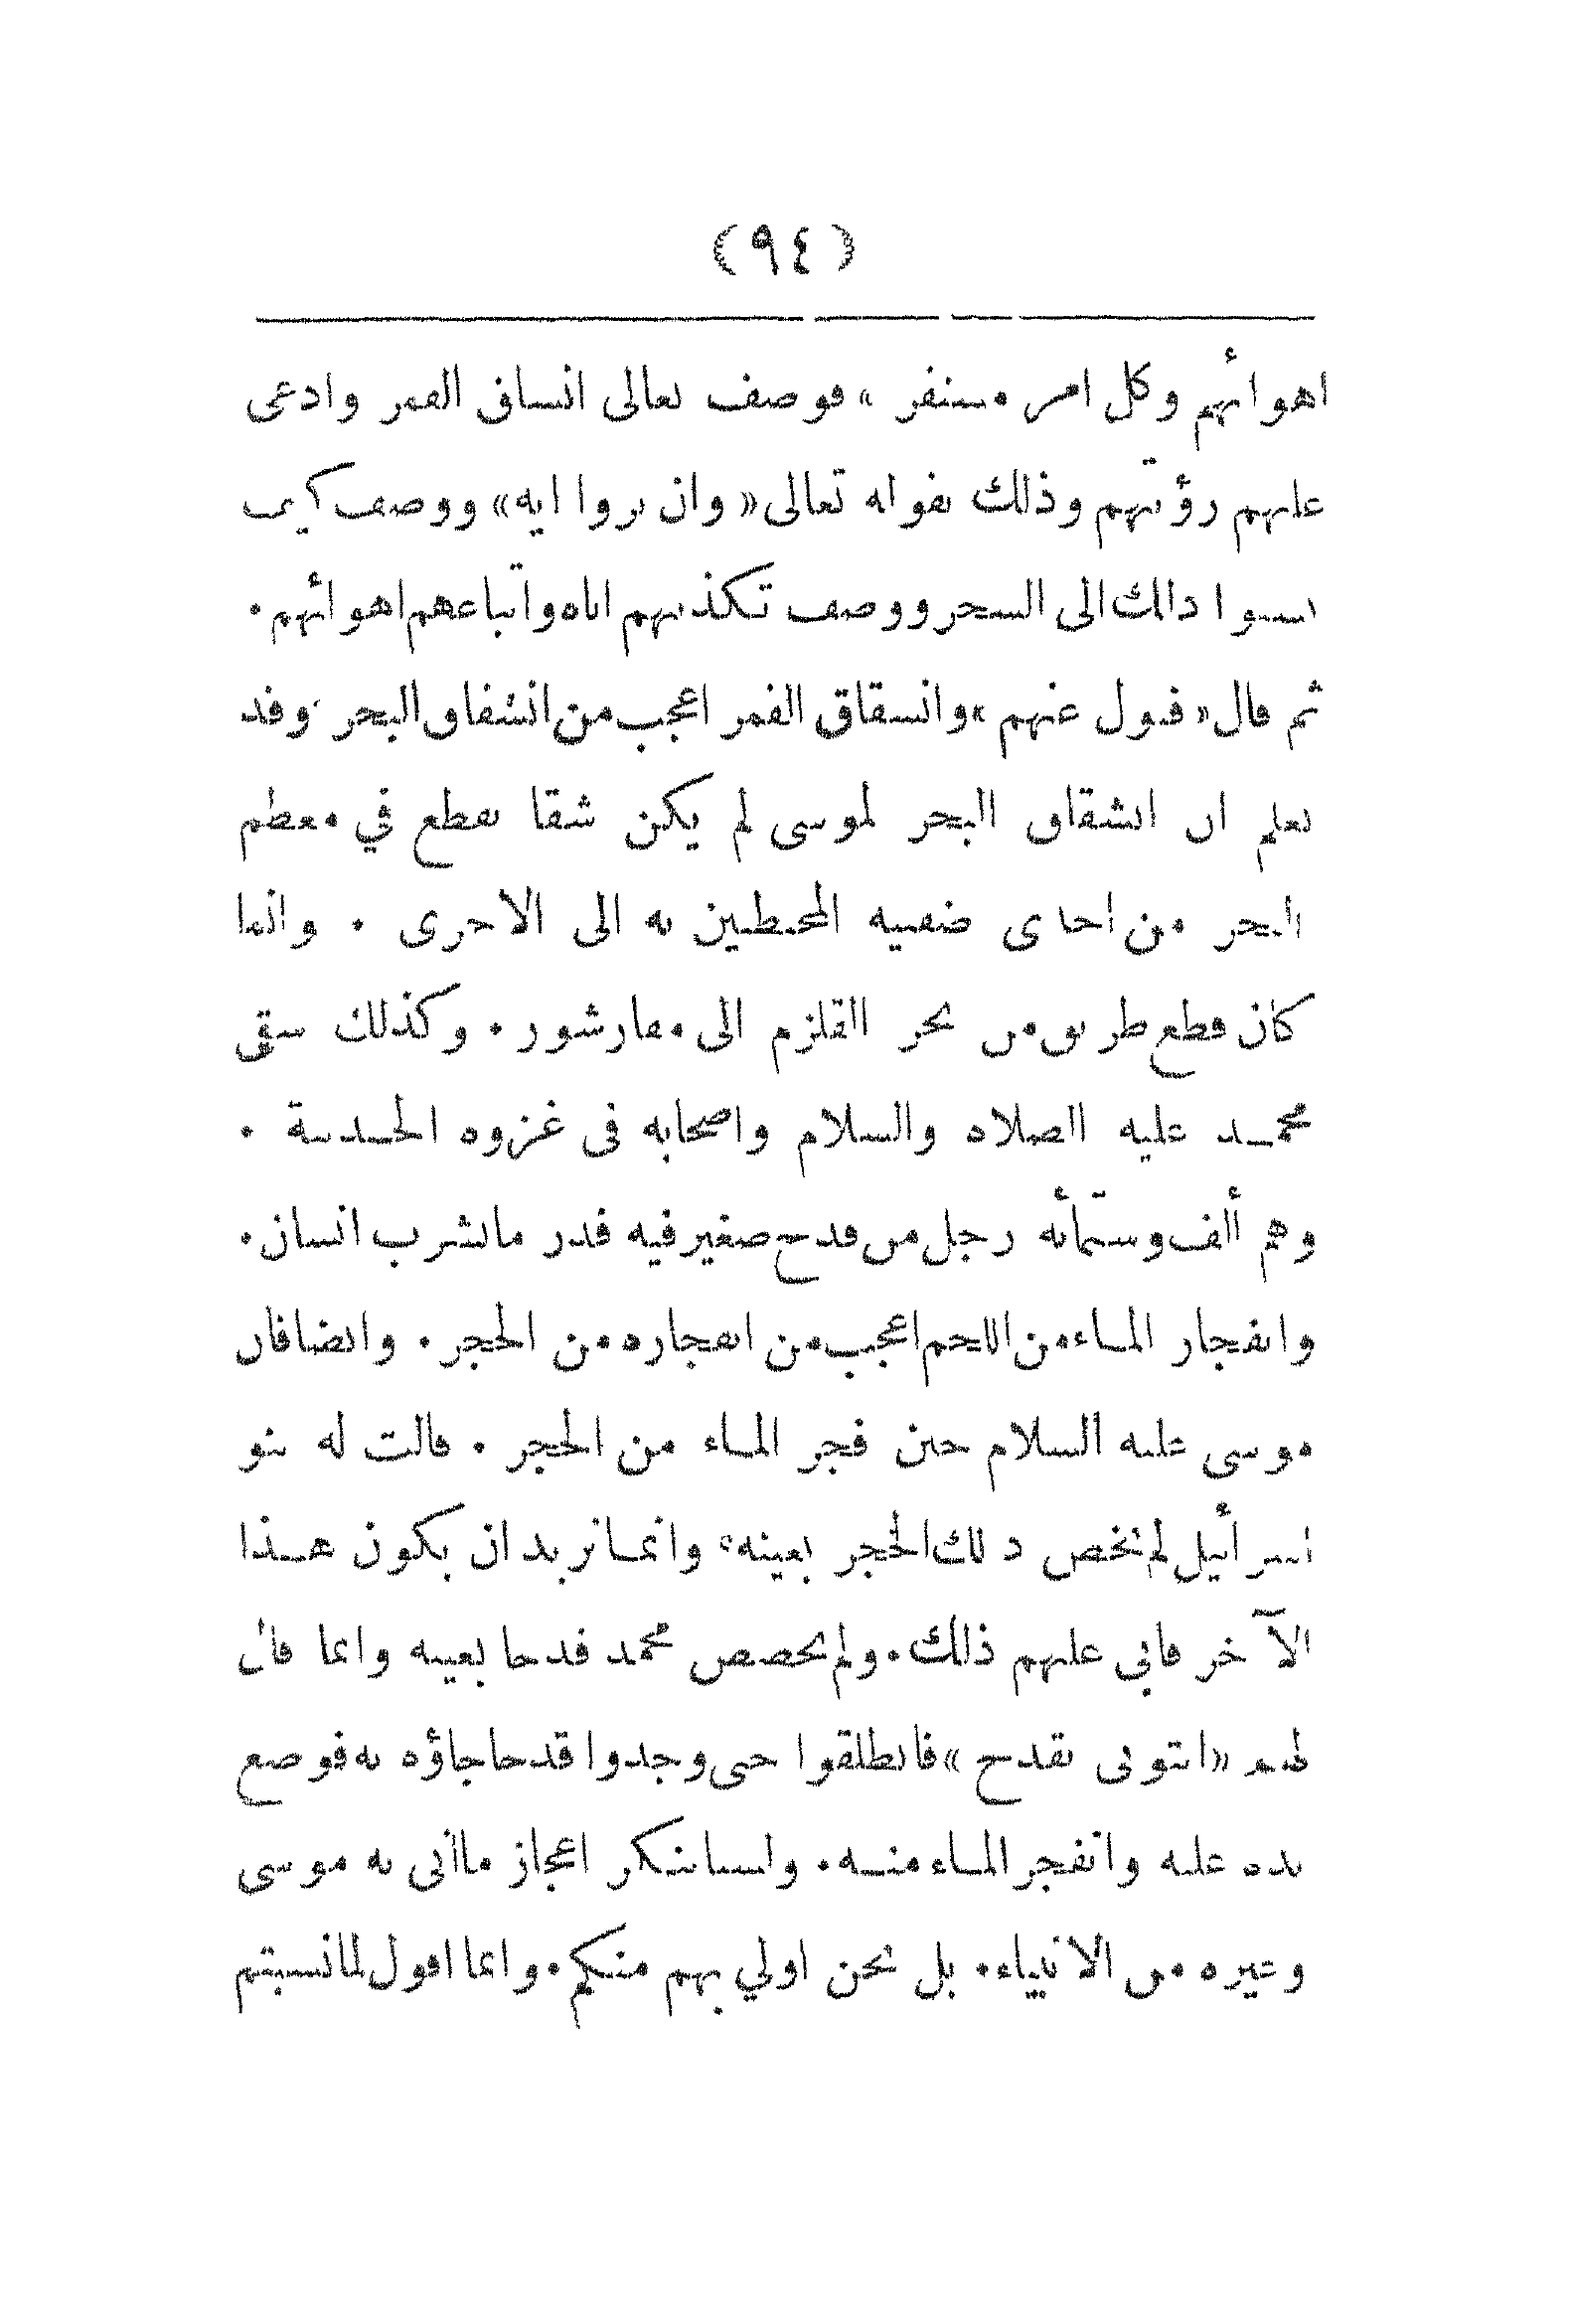 (٩٤)
اهوائهم وكل امر مستقر» فوصف تعالى انشقاق القمر وادعى
عليهم رؤيتهم وذلك بقوله تعالى «وان يروا اية» ووصف كيف
نسبوا ذلك الى السحر ووصف تكذيبهم اياه واتباعهم اهوائهم.
ثم قال «فتول عنهم» وانشقاق القمر اعجب من انشقاق البحر وقد
تعلم ان انشقاق البحر لموسى لم يكن شقا يقطع في معظم
البحر من احدى ضفتيه المحيطين به الى الاخرى. وانما
كان قطع طريق من بحر القلزم الى مفار شور. وكذلك سقى
محمد عليه الصلاة والسلام واصحابه في غزوة الحديبية.
وهم ألف وستمأئة رجل من قدح صغير فيه قدر ما يشرب انسان.
وانفجار الماء من اللحم اعجب من انفجاره من الحجر. وايضا فان
موسى عليه السلام حين فجر الماء من الحجر. قالت له بنو
اسرائيل لم تخص ذلك الحجر بعينه؟ وانما نريد ان يكون هذا
الآخر فابى عليهم ذلك. ولم يخصص محمد قدحا بعينه وانما قال
لهم «ايتوني بقدح» فانطلقوا حتى وجدوا قدحا جاؤه به فوضع
يده عليه وانفجر الماء منه. ولسنا ننكر اعجاز ما اتى به موسى
وغيره من الانبياء. بل نحن اولي بهم منكم. وانما اقول لما نسبتم